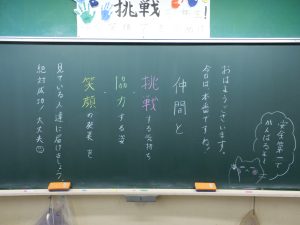 挑戦
おはようございます。
今日は本番ですね。
仲間と
挑戦する気持ち
・
協力する姿
・
笑顔の発表を
見ている人達に届けましょう。
絶対成功、大丈夫
安全第一で
がんばるよ